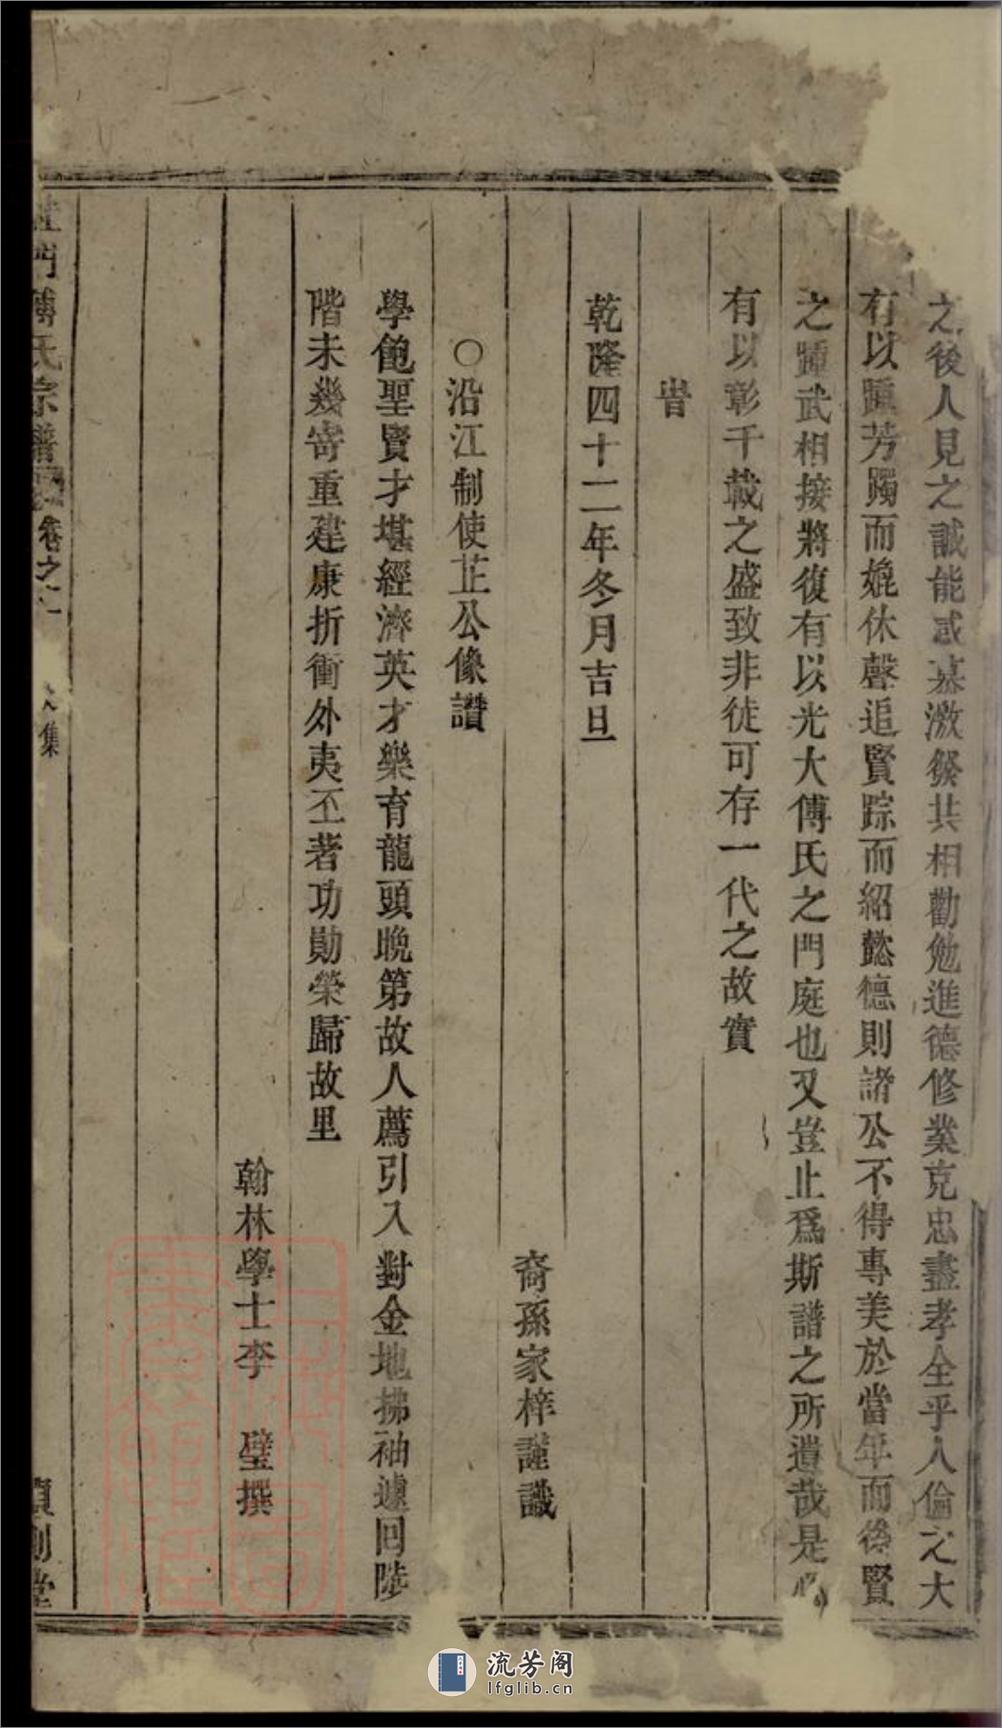 之後人見之誠能感慕激發共相勸勉進德修業克忠盡孝全乎人倫之大
有以踵芳躅而媲休聲追賢踪而紹懿德則諸公不得專美於當年而後賢
之踵武相接將復有以光大傅氏之門庭也又豈止爲斯譜之所遺哉是
有以彰千載之盛致非徒可存一代之故實
旹
乾隆四十二年冬月吉旦
裔孫家梓謹識
○沿江制使芷公像讚
學飽聖賢才堪經濟英才樂育龍頭晚第故人薦引入對金地拂袖遽回陟
階未幾寄重建康折衝外夷丕著功勛榮歸故里
翰林學士李 璧撰
門傅氏宗譜 卷之 集
堂
流芳阁
lfglib.cn